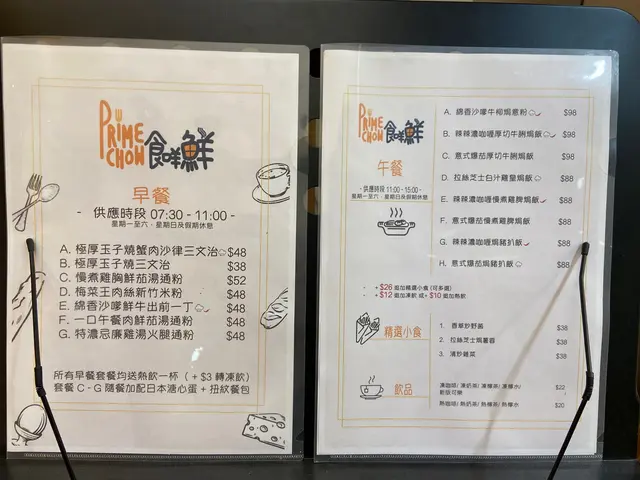 PRIME CHON 食咩鮮
早餐
- 供應時段 07:30 - 11:00 -
星期一至六、星期日及假期休息
A. 極厚玉子燒蟹肉沙律三文治 $48
B. 極厚玉子燒三文治 $38
C. 慢煮雞胸鮮茄湯通粉 $52
D. 梅菜王肉絲新竹米粉 $48
E. 綿香沙嗲鮮牛出前一丁 $48
F. 一口午餐肉鮮茄湯通粉 $48
G. 特濃忌廉雞湯火腿通粉 $48
所有早餐套餐均送熱飲一杯（+ $3 轉凍飲）
套餐 C - G 隨餐加配日本溏心蛋 + 扭紋餐包
PRIME CHON 食咩鮮
午餐
- 供應時段 11:00 - 15:00 -
星期一至六、星期日及假期休息
A. 綿香沙嗲牛柳焗意粉 $98
B. 辣辣濃咖喱厚切牛脷焗飯 $98
C. 意式爆茄厚切牛脷焗飯 $98
D. 拉絲芝士白汁雞皇焗飯 $88
E. 辣辣濃咖喱慢煮雞髀焗飯 $88
F. 意式爆茄慢煮雞髀焗飯 $88
G. 辣辣濃咖喱焗豬扒飯 $88
H. 意式爆茄焗豬扒飯 $88
+ $26 追加精選小食 (可多選)
+ $12 追加凍飲 或+ $10 追加熱飲
精選小食
1. 香草炒野菌 $38
2. 拉絲芝士焗薯蓉 $38
3. 清炒雜菜 $38
飲品
凍咖啡/ 凍奶茶/ 凍檸茶/ 凍檸水/ $22
熱咖啡/ 熱奶茶/ 熱檸茶/ 熱檸水 $20